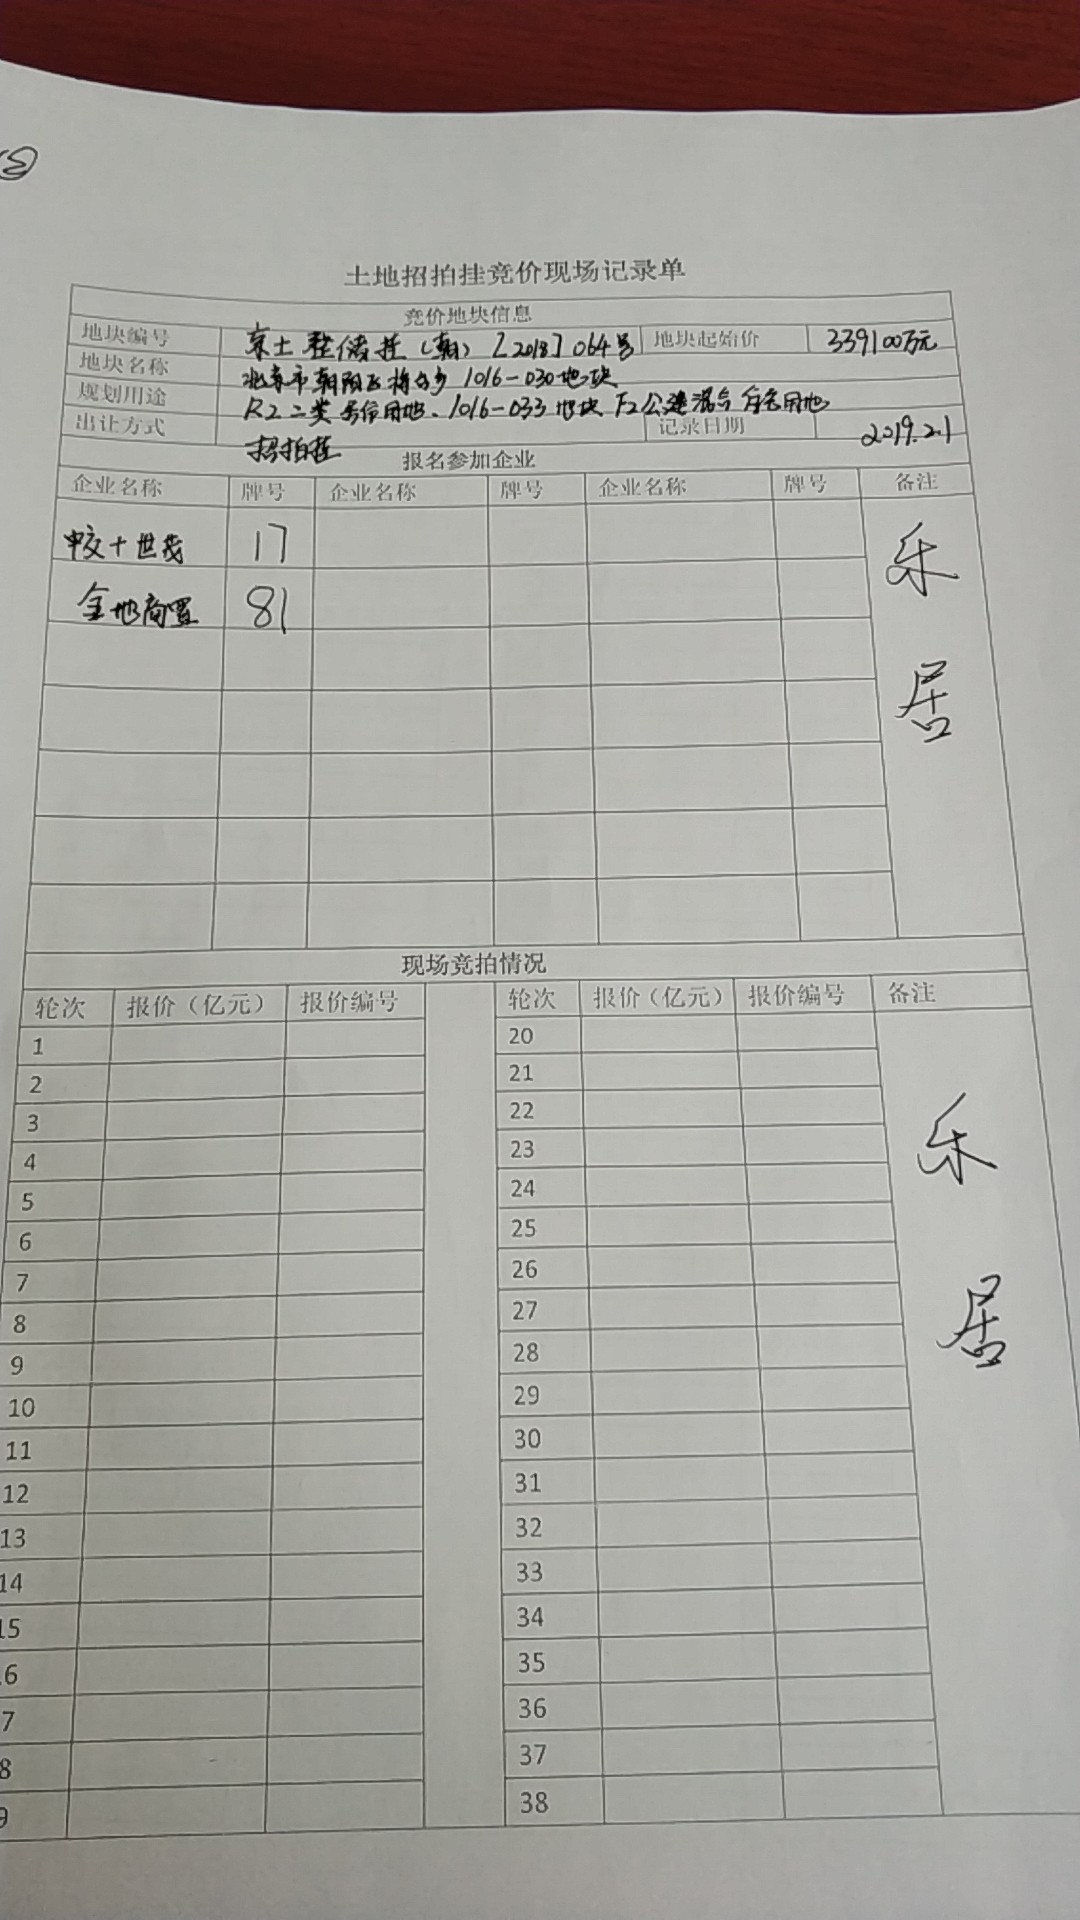 ③
土地招拍挂竞价现场记录单
竞价地块信息
地块编号 京土整储挂(朝)[2018]064号 地块起始价 339100万元
地块名称 北京市朝阳区将台乡1016-030地块
规划用途 R2二类居住用地、1016-033地块F2公建混合住宅用地
出让方式 招拍挂 记录日期 2019.2.1
报名参加企业
企业名称 牌号 企业名称 牌号 企业名称 牌号 备注
中交+世茂 17
金地商置 81
乐
居
现场竞拍情况
轮次 报价（亿元） 报价编号 轮次 报价（亿元） 报价编号 备注
1 20
2 21
3 22
4 23
5 24
6 25
7 26
8 27
9 28
10 29
11 30
12 31
13 32
14 33
15 34
6 35
7 36
8 37
9 38
乐
居